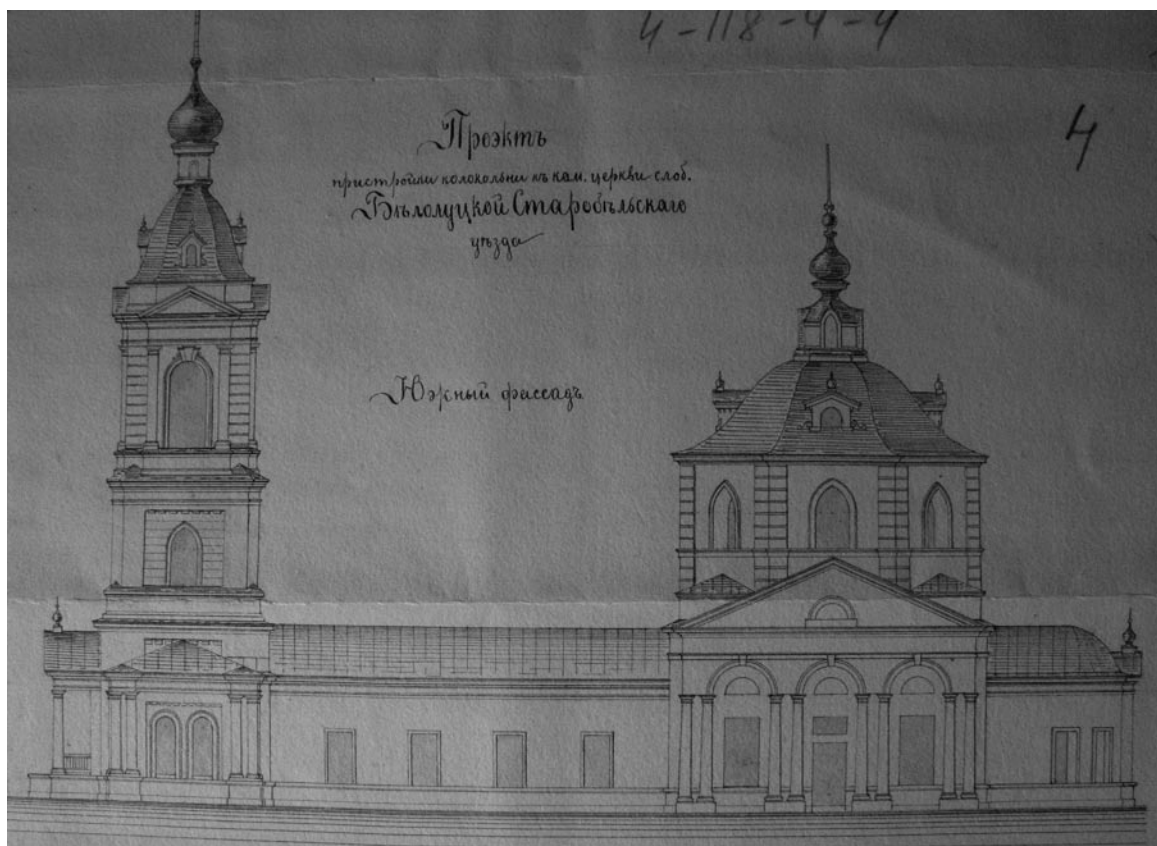 4-118-4-4
4
Проэктъ
пристройки колокольни къ кам. церкви слоб.
Бѣлолуцкой Старобѣльскаго
уѣзда
Южный фассадъ.